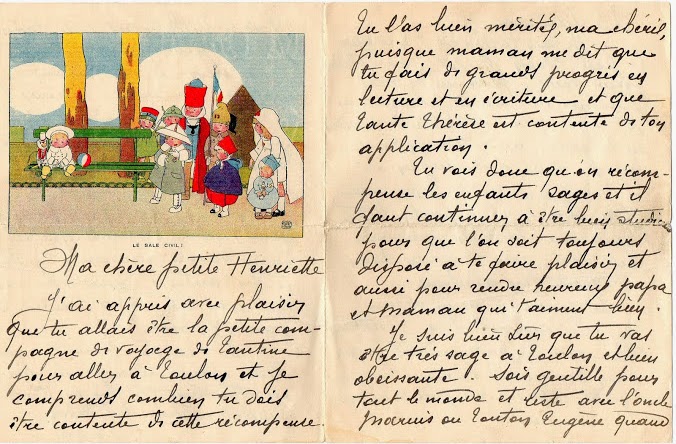 LE SALE CIVIL!
Ma chère petite Henriette
J'ai appris avec plaisir
que tu allais être la petite com-
pagne de voyage de Tantine
pour aller à Toulon et je
comprends combien tu dois
être contente de cette récompense.
Tu l'as bien mérité, ma chérie,
puisque maman me dit que
tu fais de grands progrès en
lecture et en écriture et que
tante Thérèse est contente de ton
application.
Tu vois donc qu'on récom-
pense les enfants sages et il
faut continuer à être bien
pour que l'on soit toujours
disposé à te faire plaisir et
aussi pour rendre heureux papa
et maman qui t'aiment bien.
Je suis bien sûr que tu vas
être très sage à Toulon et bien
obeissante. Sois gentille pour
tout le monde et avec l'oncle
ou Tonton Eugène quand